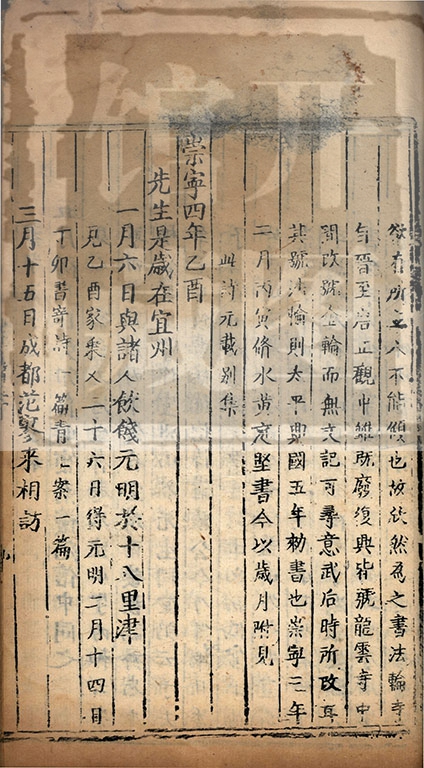 有所之人不能傾也故欣然爲之書法輪寺
自晉至唐正觀中雖既廢復興皆號龍雲寺中
間改號金輪而無文記可尋意武后時所改耳
其號法輪則太平興國五年勑書也崇寧三年
二月丙寅脩水黃庭堅書今以歲月附見
此詩元載別集
崇寧四年乙酉
先生是歲在宜州
一月六日與諸人飲餞元明於十八里津
見乙酉家乘又二十六日得元明二月十四日
丁卯書寄詩一篇青玉案一篇
三月十五日成都范寥來相訪